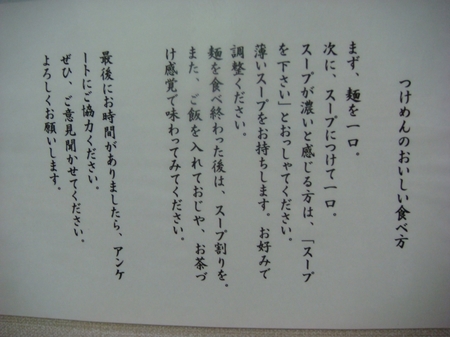 つけめんのおいしい食べ方
まず、麺を一口。
次に、スープにつけて一口。
スープが濃いと感じる方は、「スープ
を下さい」とおっしゃてください。
薄いスープをお持ちします。お好みで
調整ください。
麺を食べ終わった後は、スープ割りを。
また、ご飯を入れておじや、お茶づ
け感覚で味わってみてください。
最後にお時間がありましたら、アンケ
ートにご協力ください。
ぜひ、ご意見聞かせてください。
よろしくお願いします。